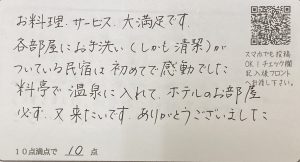 お料理、サービス、大満足です。
各部屋にお手洗い(しかも清潔)が
ついている民宿は初めてで感動でした
料亭で温泉に入れて、ホテルのお部屋
必ず、又来たいです。ありがとうございました
10点満点で 10 点
スマホでも投稿
OK！チェック欄
記入後フロント
へお渡し下さい。